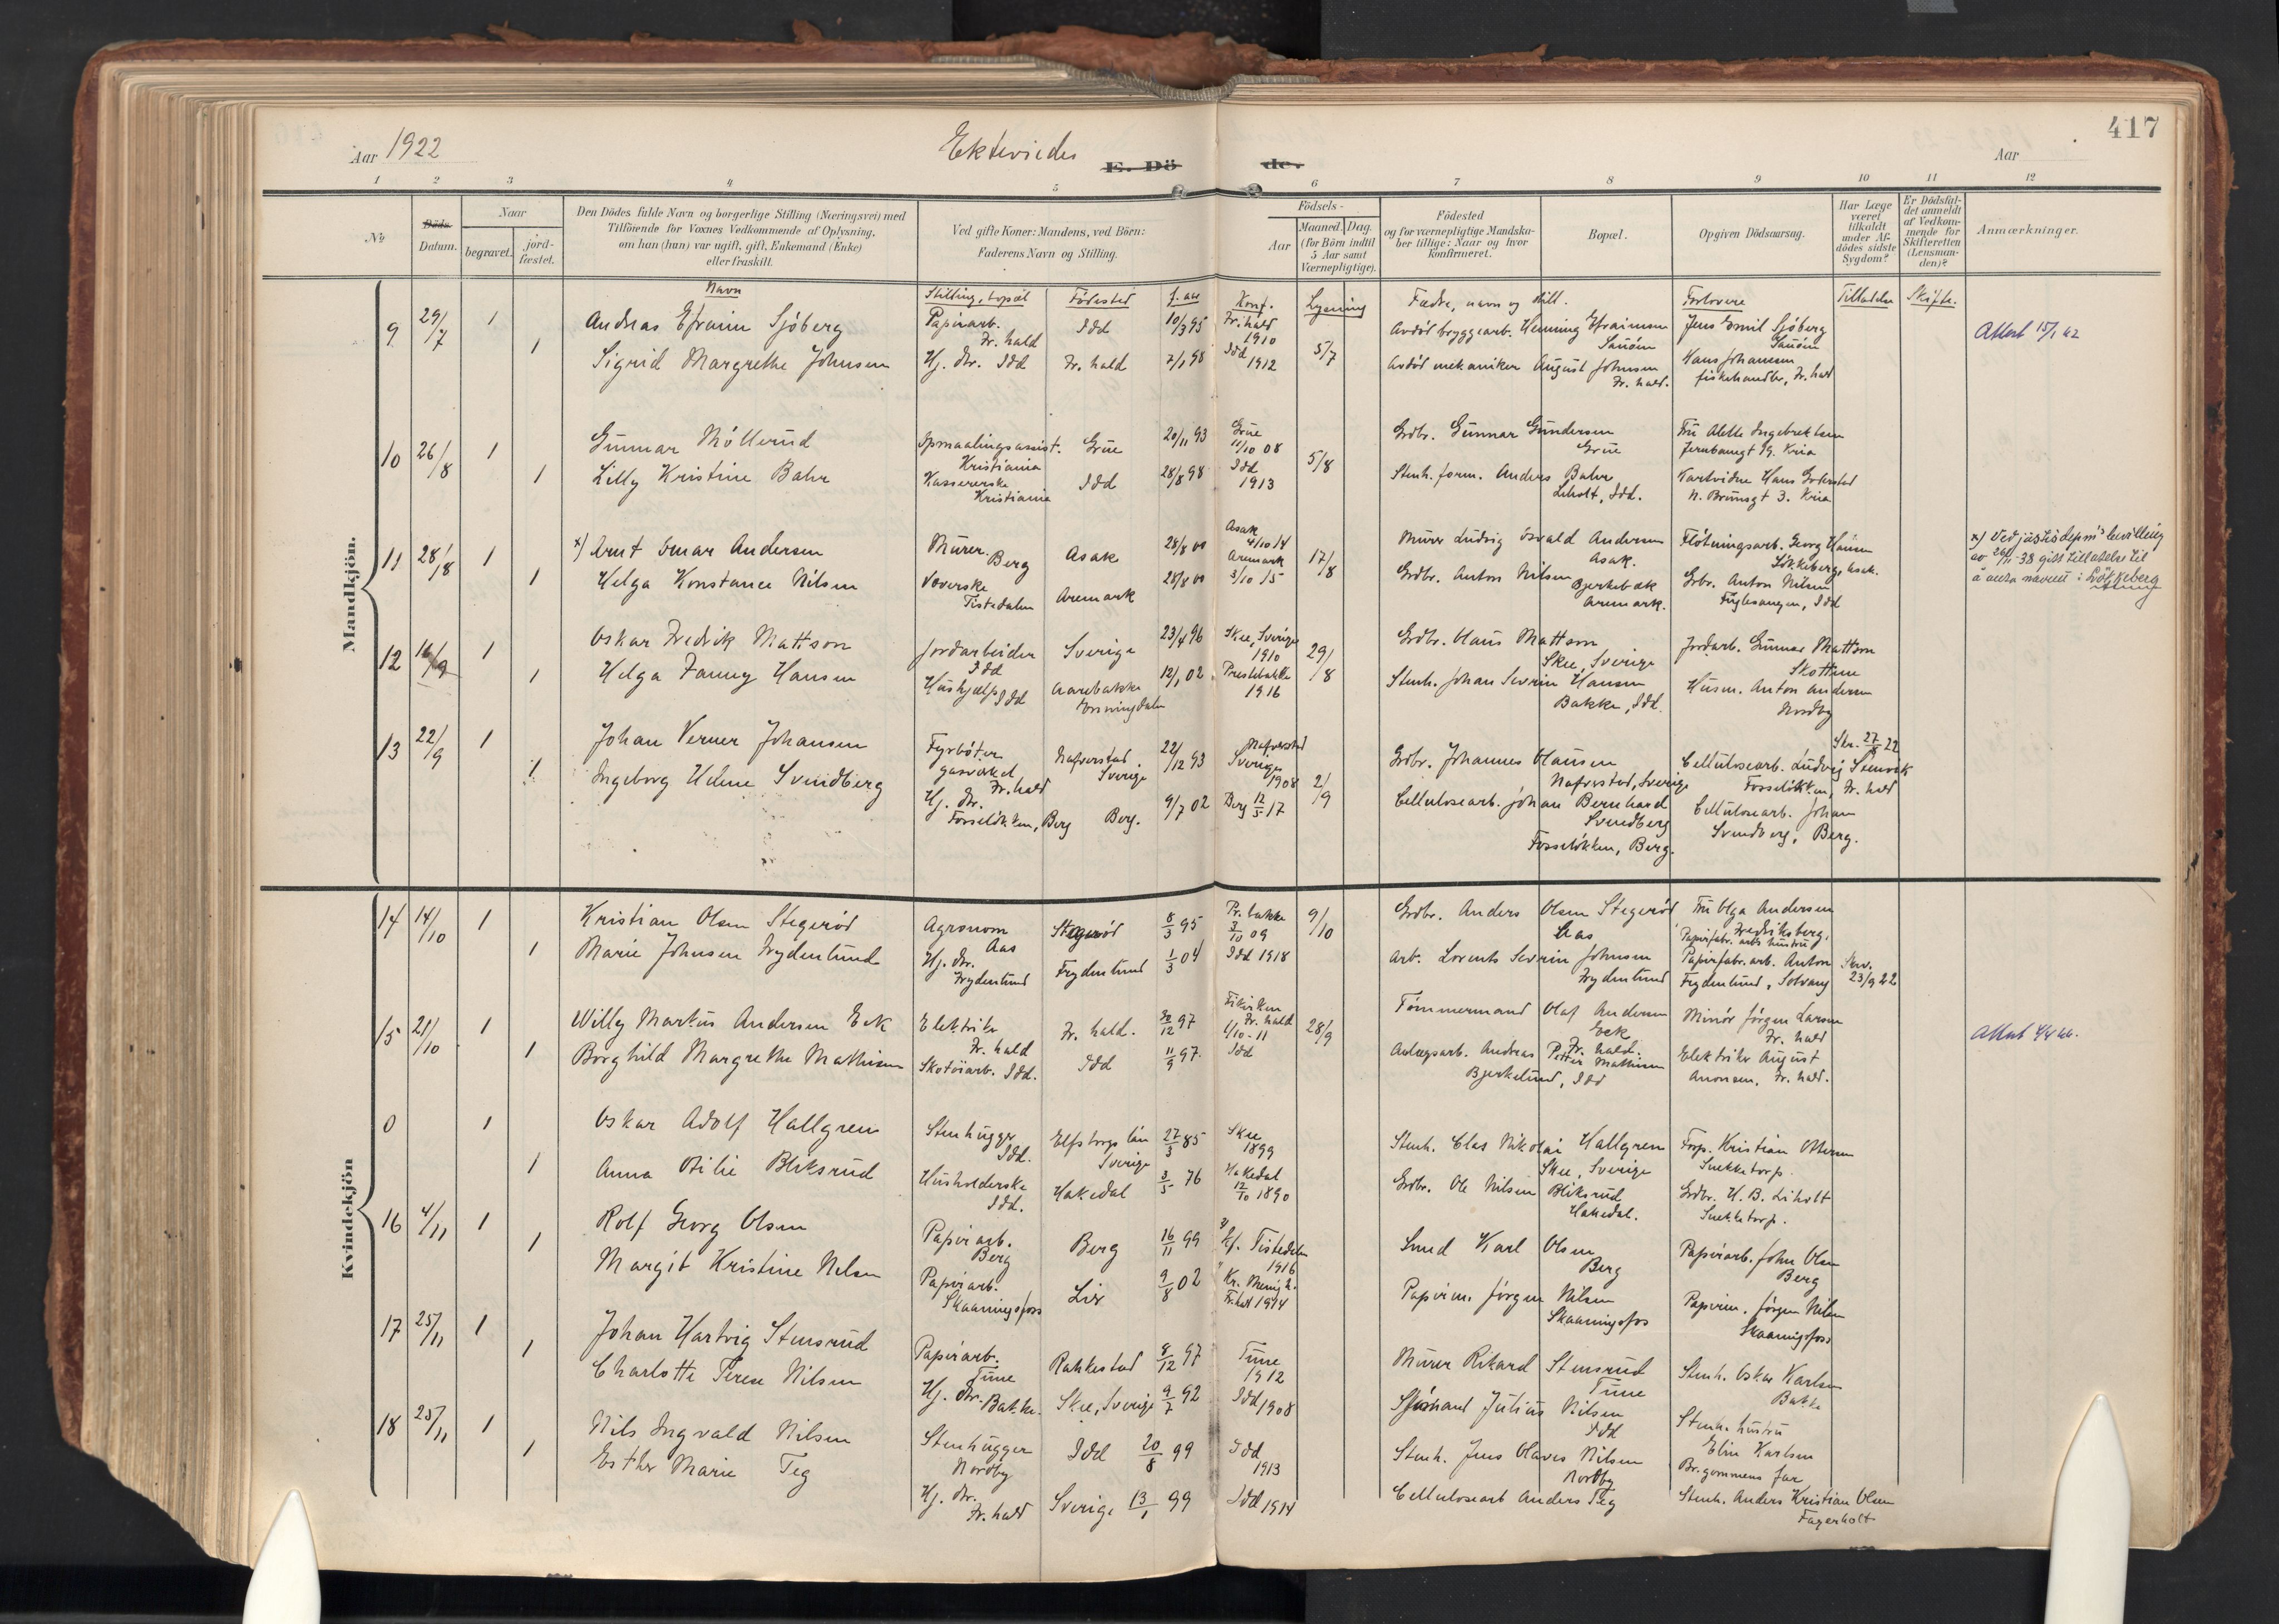 417
Aar 1922
Ekteviede
E. Döde.
Aar
1 2 3 4 5 6 7 8 9 10 11 12
No
Döds-
Datum.
Naar
begravet.
jord-
fæstet.
Den Dödes fulde Navn og borgerlige Stilling (Næringsvei) med
Tilföiende for Voxnes Vedkommende af Oplysning,
om han (hun) var ugift, gift, Enkemand (Enke)
eller fraskilt.
Ved gifte Koner: Mandens, ved Börn:
Faderens Navn og Stilling.
Födsels-
Aar
Maaned.
Dag.
(for Börn indtil
5 Aar samt
Værnepligtige).
Födested
og for værnepligtige Mandska-
ber tillige: Naar og hvor
konfirmeret.
Bopæl.
Opgiven Dödsaarsag.
Har Læge
været
tilkaldt
under Af-
dödes sidste
Sygdom?
Er Dödsfal-
det anmeldt
af Vedkom-
mende for
Skifteretten
(Lensman-
den)?
Anmærkninger.
Navn
Stilling, bopæl
Fødested
f. aar
Konf.
Lysning
Fædre, navn og still.
Forlovere
Tilladelse
Skifte.
Mandkjön.
9 29/7 1
Andreas Efraim Sjöberg
Papirarb.
Fr.hald
Idd
10/3 95
Fr.hald
1910
5/7
Avdöd bryggearb. Henning Efraimsen
Sauöen
Jens Emil Sjöberg
Sauöen
Attest 15/1 42
1
Sigrid Margrethe Johnsen
Hj. dtr. Idd
Fr.hald
7/1 98
Idd
1912
Avdöd mekaniker August Johnsen
Fr.hald.
Hans Johansen
fiskehandler, Fr.hald
10 26/8 1
Gunnar Möllerud
Opmaalingsassist.
Kristiania
Grue
20/11 93
Grue
11/10 08
5/8
Grdbr. Gunnar Gundersen
Grue
Fru Alette Ingebrektsen
Jernbanegt 19. Kria
1
Lilly Kristine Bahr
Kassererske
Kristiania
Idd
28/8 98
Idd
1913
Stenh. form. Anders Bahr
Liholt, Idd.
N. Brunsgt 3. Kria
11 28/8 1
x) Arnt Einar Andersen
Murer
Berg
Asak
28/8 00
Asak
4/10 14
17/8
Murer Ludvig Osvald Andersen
Asak.
Flötningsarb. Georg Hansen
Lökkeberg, Asak.
x) Ved justisdepm's bevilling
av 26/11-38 gitt tillatelse til
å anta navnet: Lökkeberg
1
Helga Konstance Nilsen
Væverske
Tistedalen
Aremark
28/8 00
Aremark
3/10 15
Grdbr. Anton Nilsen
Bjerkebæk
Aremark.
Grbr. Anton Nilsen
Fuglesangen, Idd
12 16/9 1
Oskar Fredrik Mattson
Jordarbeider
Idd
Sverige
23/4 96
Skee, Sverige
1910
29/8
Grdbr. Claus Mattson
Skee, Sverige
Jordarb. Gunnar Mattson
Skottene
1
Helga Fanny Hansen
Hushjælp Idd
Aarebakke
Enningdalen
12/1 02
Prestebakke
1916
Stenh. Johan Severin Hansen
Bakke, Idd.
Husm. Anton Andersen
Nordby
13 22/9 1
Johan Verner Johansen
Fyrböter
gasverket
Fr.hald
Nafverstad
Sverige
22/12 93
Nafverstad
Sverige
1908
2/9
Grdbr. Johannes Clausen
Nafverstad, Sverige
Cellulosearb. Ludvig Stenvik
Fosselökken, Fr.hald
Skr. 27/8 22
1
Ingeborg Helene Svendberg
Hj. dtr.
Fosselökken, Berg
Berg.
9/7 02
Berg 12/5 17
Cellulosearb. Johan Bernhard
Svendberg
Fosselökken, Berg.
Cellulosearb. Johan
Svendberg, Berg.
Kvindekjön
14 14/10 1
Kristian Olsen Stegeröd
Agronom
Aas
Stegeröd
8/3 95
Pr.bakke
3/10 09
9/10
Grdbr. Anders Olsen Stegeröd
Aas
Fru Olga Andersen
Fredriksberg,
Papirfabr. arb. hustru
1
Marie Johnsen Frydenlund
Hj. dtr.
Frydenlund
Frydenlund
1/3 04
Idd 1918
Arb. Lorents Severin Johnsen
Frydenlund
Papirfabr. arb. Anton
Frydenlund, Solvang
Skr.
23/9 22
15 21/10 1
Willy Markus Andersen Eek
Elektriker
Fr.hald
Fr.hald.
30/12 97
Fr.hald
1/10-11
28/9
Tömmermand Olaf Andersen
Eek
Fr.hald.
Minör Jörgen Larsen
Fr.hald
Attest 4/4 46.
1
Borghild Margrethe Mathisen
Skotöiarb. Idd.
Idd
11/9 97
Idd
Anlægsarb. Andreas Petter Mathisen
Bjerkelund, Idd
Elektriker August
Aronsen, Fr.hald.
0 1
Oskar Adolf Hallgren
Stenhugger
Idd.
Elfsborgs län
Sverige
27/3 85
Skee
1899
Stenh. Clas Nikolai Hallgren
Skee, Sverige
Forp. Kristian Ottersen
Snekketorp.
1
Anna Otilie Bliksrud
Husholderske
Idd.
Hakedal
3/5 76
Hakedal
12/10 1890
Grdbr. Ole Nilsen Bliksrud
Hakedal.
Grdbr. H. B. Liholt
Snekketorp.
16 4/11 1
Rolf Georg Olsen
Papirarb.
Berg
Berg
16/11 99
Tistedalen
1916
Smed Karl Olsen
Berg
Papirarb. John Olsen
Berg
1
Margit Kristine Nilsen
Papirarb.
Skaaningsfoss
Lier
9/8 02
Kr. Menigh.
Fr.hald 1914
Papirm. Jörgen Nilsen
Skaaningsfos
Papirm. Jörgen Nilsen
Skaaningsfoss
17 25/11 1
Johan Hartvig Stensrud
Papirarb.
Tune
Rakkestad
8/12 97
Tune
1912
Murer Rikard Stensrud
Tune
Stenh. Oskar Karlsen
Bakke
1
Charlotte Terese Nilsen
Hj. dtr. Bakke.
Skee, Sverige
9/7 92
Idd 1908
Sjömand Julius Nilsen
Idd
Stenh. hustru
Elin Karlsen
18 25/11 1
Nils Ingvald Nilsen
Stenhugger
Nordby
Idd
20/8 99
Idd
1913
Stenh. Jens Olaves Nilsen
Nordby
Br.gommens far
1
Esther Marie Teg
Hj. dtr.
Fr.hald
Sverige
13/1 99
Idd 1914
Cellulosearb Anders Teg
Stenh. Anders Kristian Olsen
Fagerholt